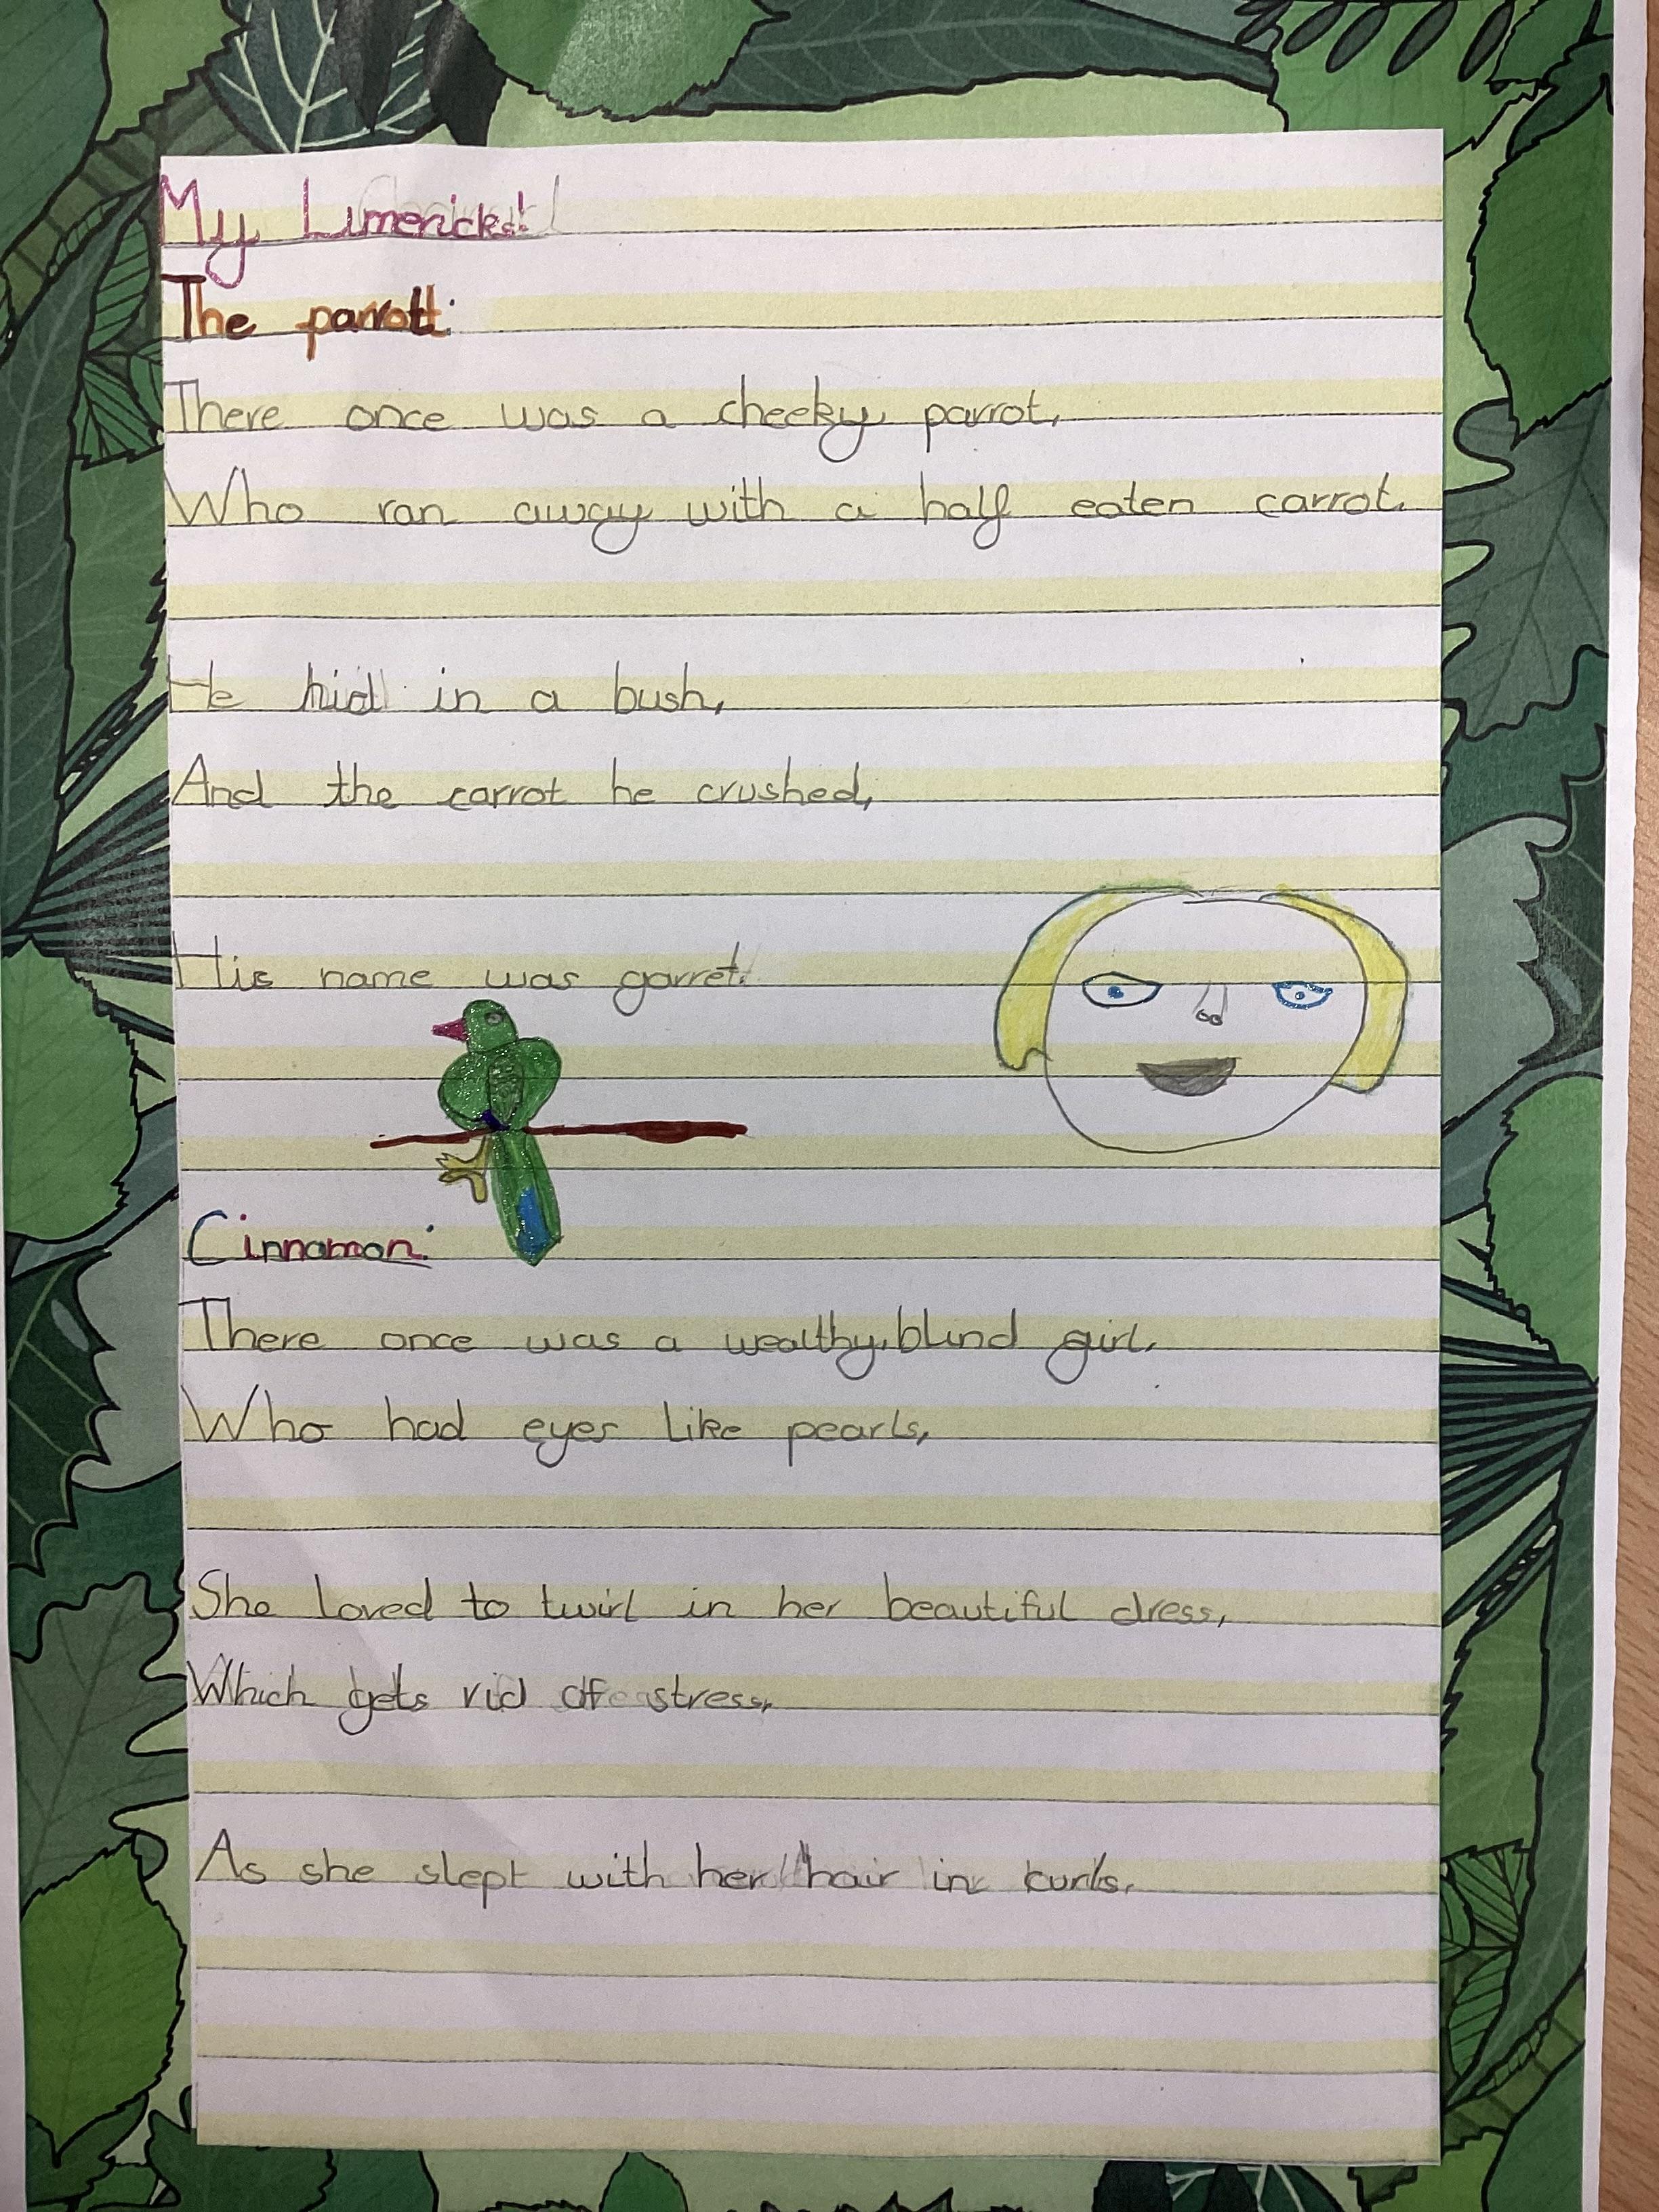 My Limericks!
The parrot:
There once was a cheeky parrot,
Who ran away with a half eaten carrot.
He hid in a bush,
And the carrot he crushed,
His name was garret.
Cinnamon:
There once was a wealthy, blind girl,
Who had eyes like pearls,
She loved to twirl in her beautiful dress,
Which gets rid of stress,
As she slept with her hair in curls.